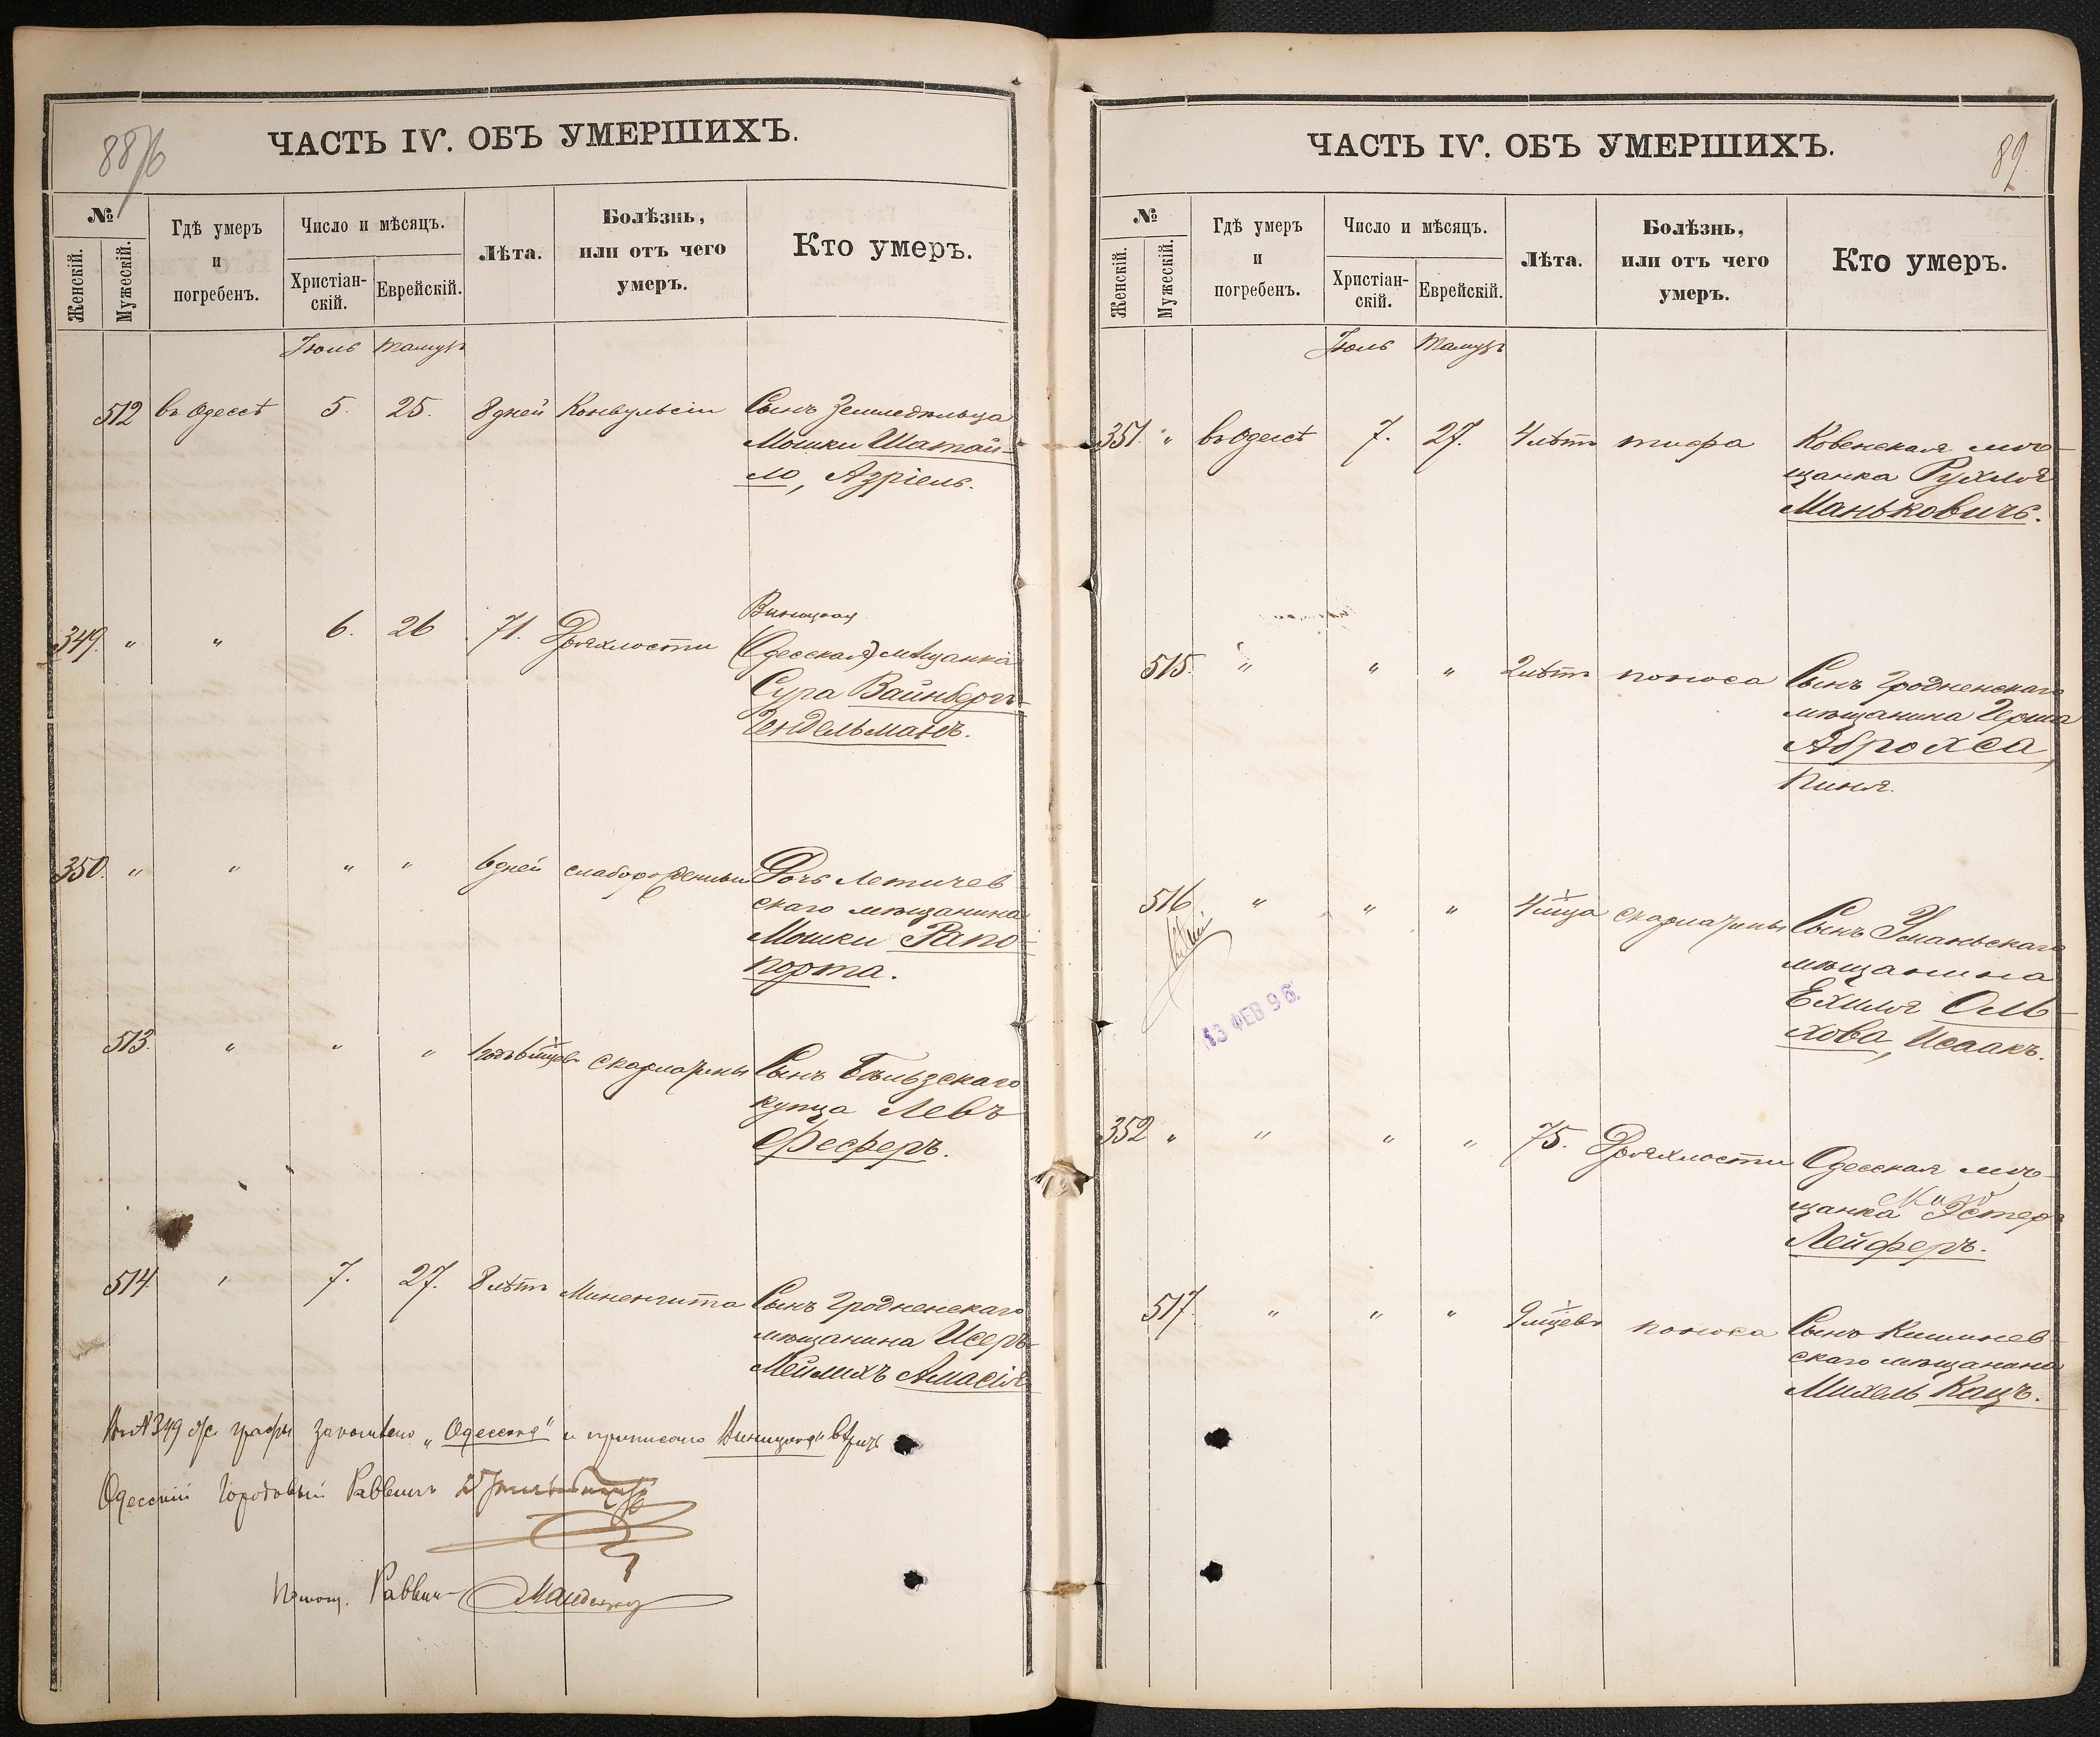 ЧАСТЬ IV. ОБЪ УМЕРШИХЪ.
№
Женскій.
Мужескій.
Гдѣ умеръ
и
погребенъ.
Число и мѣсяцъ.
Христіан-
скій.
Еврейскій.
Лѣта.
Болѣзнь,
или отъ чего
умеръ.
Кто умеръ.
Іюль Тамузъ
512 въ Одессѣ 5. 25. 8 дней Конвульсіи Сынъ Земледѣльца
Мошки Шатай-
ло, Азріель.
Виницкая
349. " " 6. 26 71. Дряхлости (Одесская) мѣщанка
Сура Вайнбергъ-
Гендельманъ.
350. " " " " 6 дней слаборожденныи Дочь Летичев
скаго мѣщанина
Мошки Рапо-
порта.
513. " " " 1 годъ 6 мцевъ скарлатины Сынъ Бѣльзскаго
купца Левъ
Фесферъ.
514. " 7. 27. 8 лѣтъ Миненгита Сынъ Гродненскаго
мѣщанина Исеръ-
Меилихъ Амасія
№ 349 графы "Одесская" и приписано Виницкая"
Одесскій Городовый Раввинъ
Помощ. Раввин
ЧАСТЬ IV. ОБЪ УМЕРШИХЪ.
89.
№
Женскій.
Мужескій.
Гдѣ умеръ
и
погребенъ.
Число и мѣсяцъ.
Христіан-
скій.
Еврейскій.
Лѣта.
Болѣзнь,
или отъ чего
умеръ.
Кто умеръ.
Іюль Тамузъ
351. " въ Одессѣ 7. 27. 4 лѣтъ тифа Ковенская мѣ-
щанка Рухля
Маньковичъ.
515. " " " 2 лѣтъ поноса Сынъ Гродненскаго
мѣщанина Герша
Аброхса,
Пиня.
516 " " " 4 мца скарлатины Сынъ Уманьскаго
мѣщанина
Ехиля Оль-
хова, Исаакъ.
13 ФЕВ 96.
352 " " " " 75. Дряхлости Одесская мѣ-
щанка Эстеръ
Лейферъ.
517. " " " 9 мцевъ поноса Сынъ Кишинев
скаго мѣщанина
Михель Кацъ.